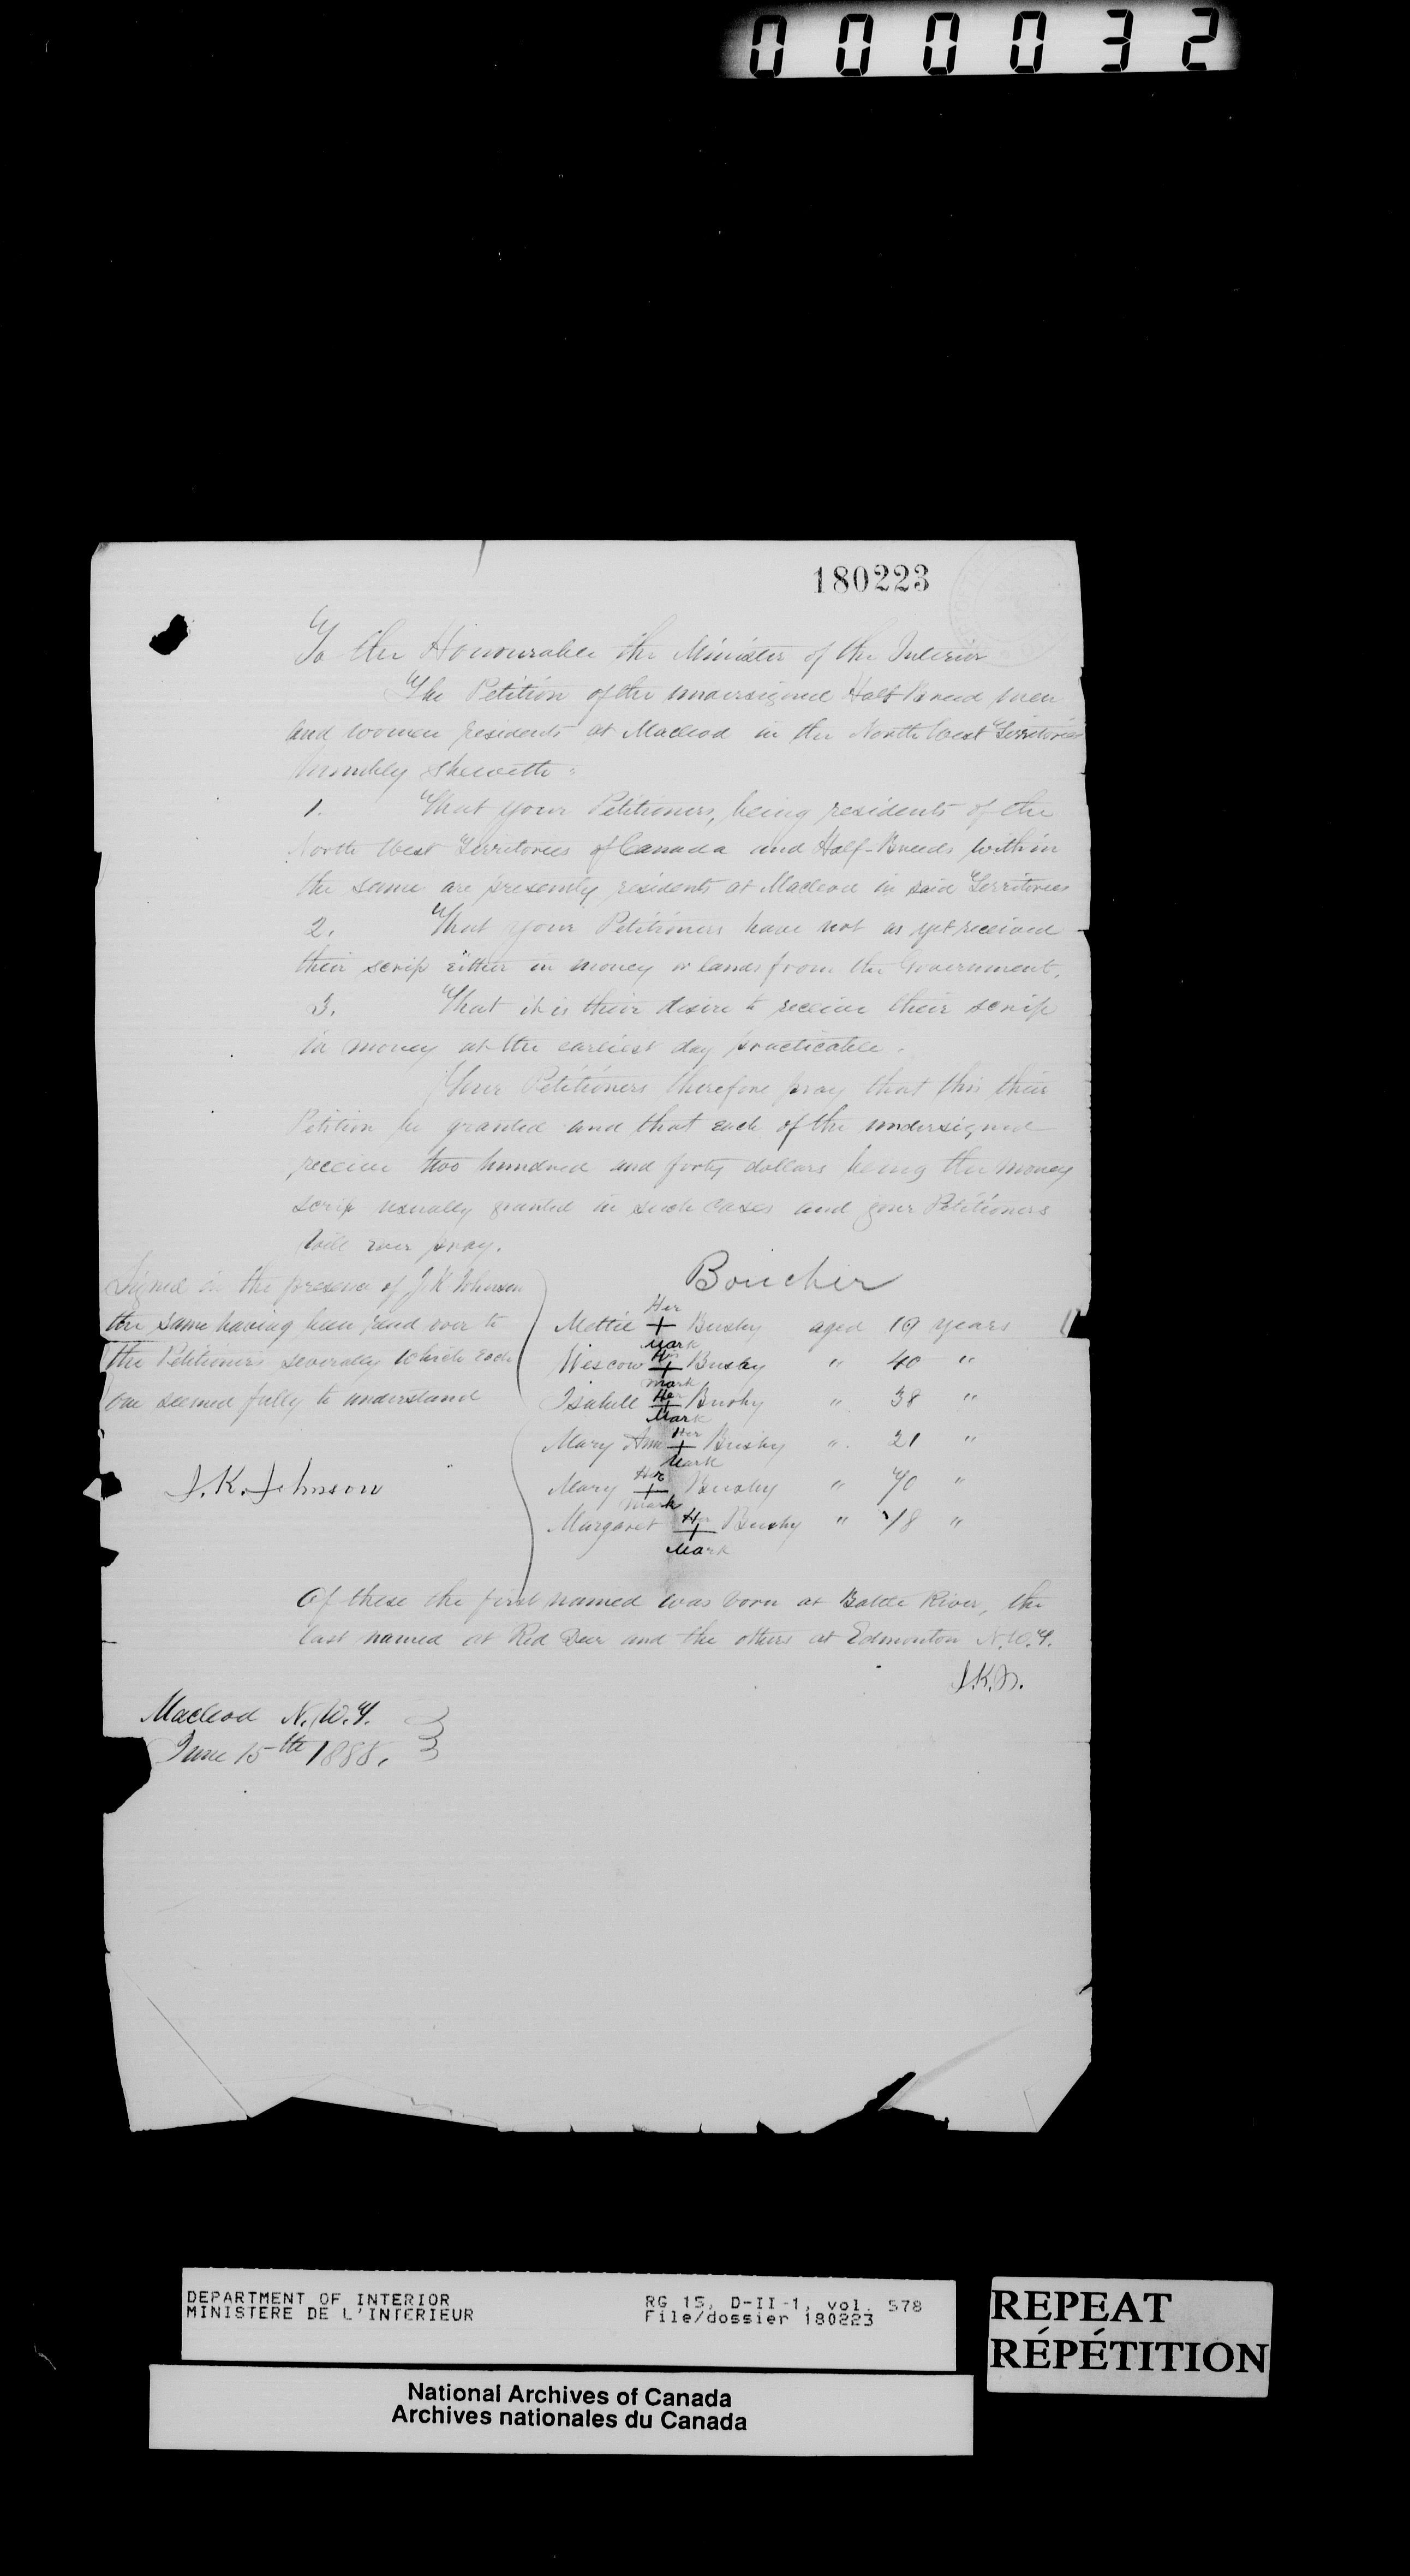 000032
180223
To the Honourable the Minister of the Interior
The Petition of the undersigned Half Breed men
and women residents at Macleod in the North West Territories
humbly sheweth:
1. That your Petitioners, being residents of the
North West Territories of Canada and Half-Breeds within
the same are presently residents at Macleod in said Territories
2. That your Petitioners have not as yet received
their scrip either in money or lands from the Government.
3. That it is their desire to receive their scrip
in money at the earliest day practicable.
Your Petitioners therefore pray that this their
Petition be granted and that each of the undersigned
receive two hundred and forty dollars being the money
scrip usually granted in such cases and your Petitioners
will ever pray.
Signed in the presence of J.K. Johnson
the same having been read over to
the Petitioners severally which each
one seemed fully to understand
J.K. Johnson
Boucher
Her
Mettie + Busby aged 19 years
Mark
His
Wescow + Busby " 40 "
Mark
Her
Isabell + Busby " 38 "
Mark
Her
Mary Ann + Busby " 21 "
Mark
Her
Mary + Busby " 70 "
Mark
Her
Margaret + Busby " 18 "
Mark
Of these the first named was born at Battle River, the
last named at Red Deer and the others at Edmonton N.W.T.
J.K.J.
Macleod N.W.T.
June 15th 1888.
DEPARTMENT OF INTERIOR
MINISTERE DE L'INTERIEUR
RG 15, D-II-1, vol. 578
File/dossier 180223
REPEAT
RÉPÉTITION
National Archives of Canada
Archives nationales du Canada